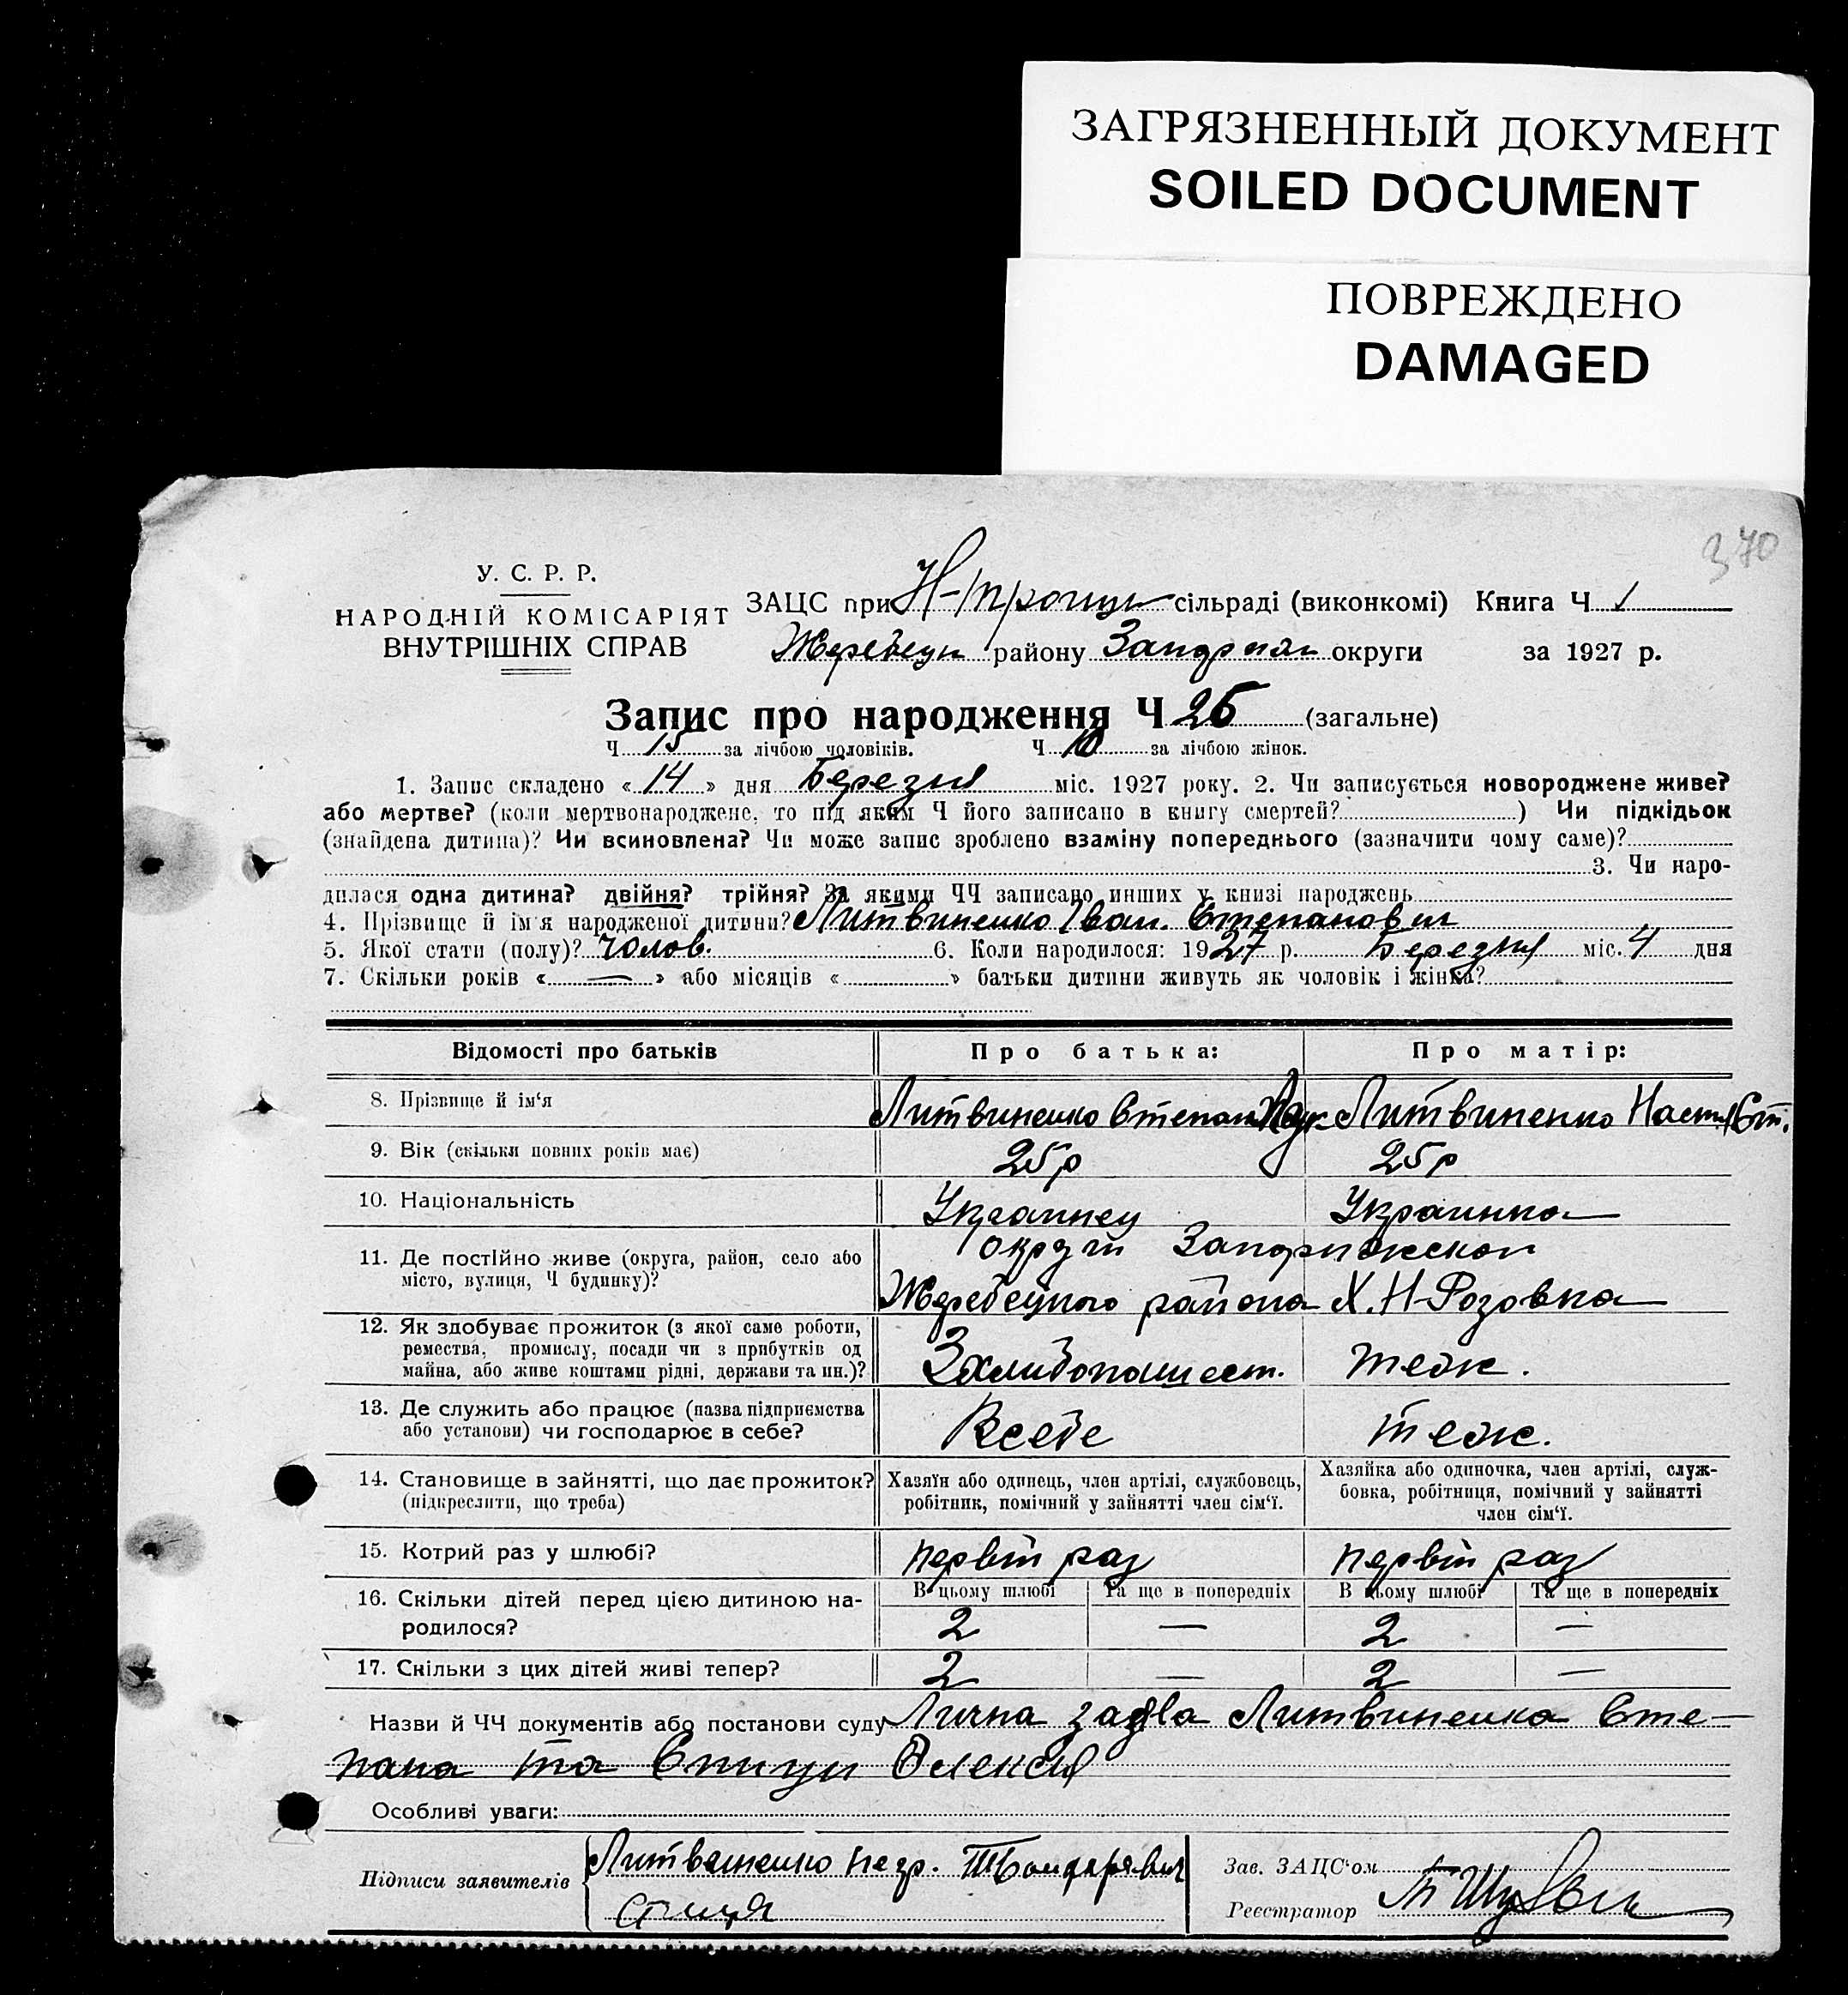 ЗАГРЯЗНЕННЫЙ ДОКУМЕНТ
SOILED DOCUMENT
ПОВРЕЖДЕНО
DAMAGED
370
У. С. Р. Р.
НАРОДНІЙ КОМІСАРІЯТ
ВНУТРІШНІХ СПРАВ
ЗАЦС при сільраді (виконкомі) Книга Ч 1
району округи за 1927 р.
Запис про народження Ч 25 (загальне)
Ч 15 за лічбою чоловіків. Ч 10 за лічбою жінок.
1. Запис складено «14» дня Березня міс. 1927 року. 2. Чи записується новороджене живе?
або мертве? (коли мертвонароджене, то під яким Ч його записано в книгу смертей? ) Чи підкідьок
(знайдена дитина)? Чи всиновлена? Чи може запис зроблено взаміну попереднього (зазначити чому саме)?
3. Чи наро-
дилася одна дитина? двійня? трійня? За якими ЧЧ записано инших у книзі народжень
4. Прізвище й ім'я народженої дитини? Литвиненко Іван. Степанович
5. Якої стати (полу)? Чолов. 6. Коли народилося: 1927 р. Березня міс. 4 дня
7. Скільки років « — » або місяців « » батьки дитини живуть як чоловік і жінка?
Відомості про батьків Про батька: Про матір:
8. Прізвище й ім‘я Литвиненко Степан Литвиненко Ст.
9. Вік (скільки повних років має) 25 р 25 р
10. Національність Украинец Украинка
11. Де постійно живе (округа, район, село або
місто, вулиця, Ч будинку)?
района Х. Н-Розовка
12. Як здобуває прожиток (з якої саме роботи,
ремества, промислу, посади чи з прибутків од
майна, або живе коштами рідні, держави та ин.)? теж.
13. Де служить або працює (назва підприємства
або установи) чи господарює в себе? Всебе теж.
14. Становище в зайнятті, що дає прожиток?
(підкреслити, що треба)
Хазяїн або одинець, член артілі, службовець,
робітник, помічний у зайнятті член сім‘ї.
Хазяйка або одиночка, член артілі, служ-
бовка, робітниця, помічний у зайнятті
член сім‘ї.
15. Котрий раз у шлюбі? раз раз
16. Скільки дітей перед цією дитиною на-
родилося?
В цьому шлюбі Та ще в попередніх В цьому шлюбі Та ще в попередніх
2 — 2 —
17. Скільки з цих дітей живі тепер? 2 — 2 —
Назви й ЧЧ документів або постанови суду Лична заява Литвиненка Сте-
пана та Олексія
Особливі уваги:
Підписи заявителів
Зав. ЗАЦС‘ом
Реєстратор